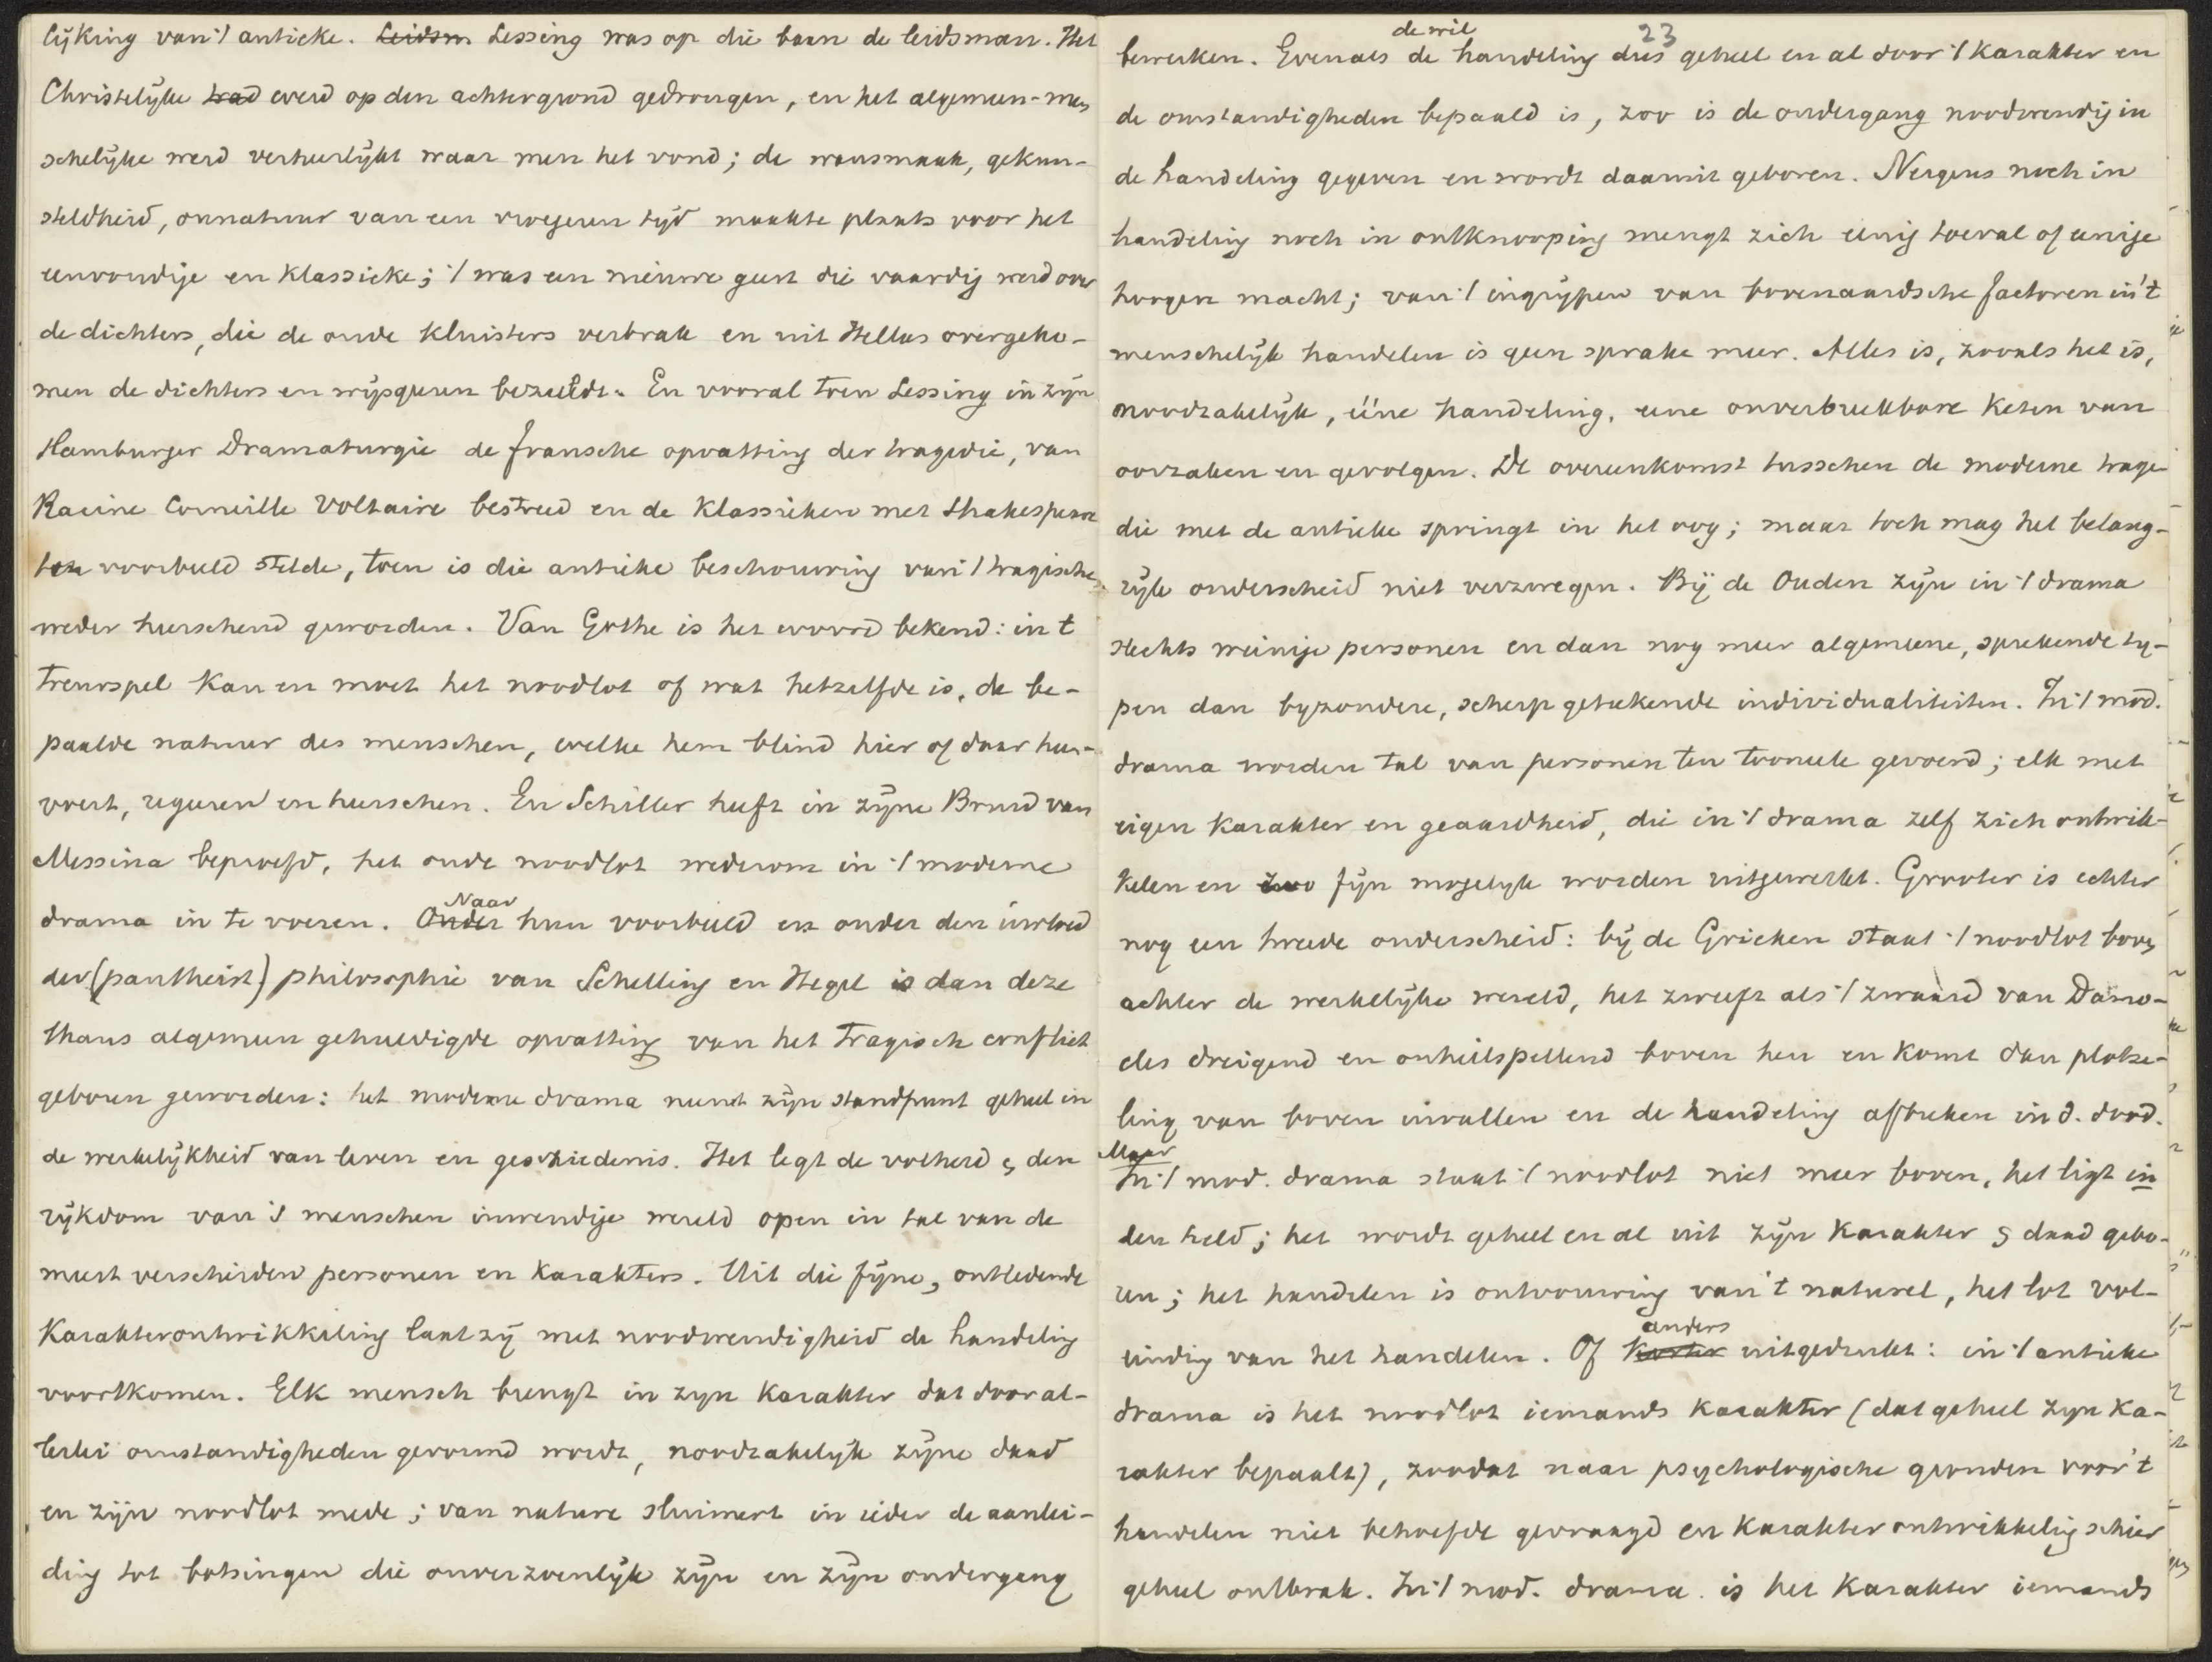 lijking van 't antieke. Leidsm Lessing was op die baan de leidsman. Het
Christelijke trad werd op den achtergrond gedrongen, en het algemeen-men
schelijke werd verheerlijkt waar men het vond; de wansmaak, gekun-
steldheid, onnatuur van een vroegeren tijd maakte plaats voor het
eenvoudige en klassieke; 't was een nieuwe geest die vaardig werd over
de dichters, die de oude kluisters verbrak en uit Hellas overgeko-
men de dichters en wijsgeeren bezielde. En vooral toen Lessing in zijn
Hamburger Dramaturgie de fransche opvatting der tragedie, van
Racine Corneille Voltaire bestreed en de klassieken met Shakespeare
ten voorbeeld stelde, toen is die antieke beschouwing van 't tragische
weder heerschend geworden. Van Göthe is het woord bekend: in t
treurspel kan en moet het noodlot of wat hetzelfde is, de be-
paalde natuur des menschen, welke hem blind hier of daar heen-
voert, regeeren en heerschen. En Schiller heeft in zijne Bruid van
Messina beproefd, het oude noodlot wederom in 't moderne
drama in te voeren. Onder Naar hun voorbeeld en onder den invloed
der (pantheist) philosophie van Schelling en Hegel is dan deze
thans algemeen gehuldigde opvatting van het tragisch conflict
geboren geworden: het moderne drama neemt zijn standpunt geheel in
de werkelijkheid van leven en geschiedenis. Het legt de volheid & den
rijkdom van 's menschen inwendige wereld open in tal van de
meest verscheiden personen en karakters. Uit die fijne, ontledende
karakterontwikkeling laat zij met noodwendigheid de handeling
voortkomen. Elk mensch brengt in zijn karakter dat door al-
lerlei omstandigheden gevormd wordt, noodzakelijk zijne daad
en zijn noodlot mede; van nature sluimert in ieder de aanlei-
ding tot botsingen die onverzoenlijk zijn en zijn ondergang
23
bewerken. Evenals de wil de handeling dus geheel en al door 't karakter en
de omstandigheden bepaald is, zoo is de ondergang noodwendig in
de handeling gegeven en wordt daaruit geboren. Nergens noch in
handeling noch in ontknooping mengt zich eenig toeval of eenige
hoogere macht; van 't ingrijpen van bovenaardsche factoren in 't
menschelijk handelen is geen sprake meer. Alles is, zooals het is,
noodzakelijk, ééne handeling, eene onverbreekbare keten van
oorzaken en gevolgen. De overeenkomst tusschen de moderne trage-
die met de antieke springt in het oog; maar toch mag het belang-
rijk onderscheid niet verzwegen. Bij de Ouden zijn in 't drama
slechts weinige personen en dan nog meer algemeene, sprekende ty-
pen dan byzondere, scherp getekende individualiteiten. In 't mod.
drama worden tal van personen ten tooneele gevoerd; elk met
eigen karakter en geaardheid, die in 't drama zelf zich ontwik-
kelen en zoo fijn mogelijk worden uitgewerkt. Grooter is echter
nog een tweede onderscheid: bij de Grieken staat 't noodlot boven
achter de werkelijke wereld, het zweeft als 't zwaard van Damo-
cles dreigend en onheilspellend boven hen en komt dan plotse-
ling van boven invallen en de handeling afbreken in d. dood.
Maar In 't mod. drama staat 't noodlot niet meer boven, het ligt in
den held; het wordt geheel en al uit zijn karakter & daad gebo-
ren; het handelen is ontvouwing van 't naturel, het lot vol-
einding van het handelen. Of korter anders uitgedrukt: in 't antieke
drama is het noodlot iemands karakter (dat geheel zijn ka-
rakter bepaalt), zoodat naar psychologische gronden voor 't
handelen niet behoefde gevraagd en karakterontwikkeling schier
geheel ontbrak. In 't mod. drama is het karakter iemands